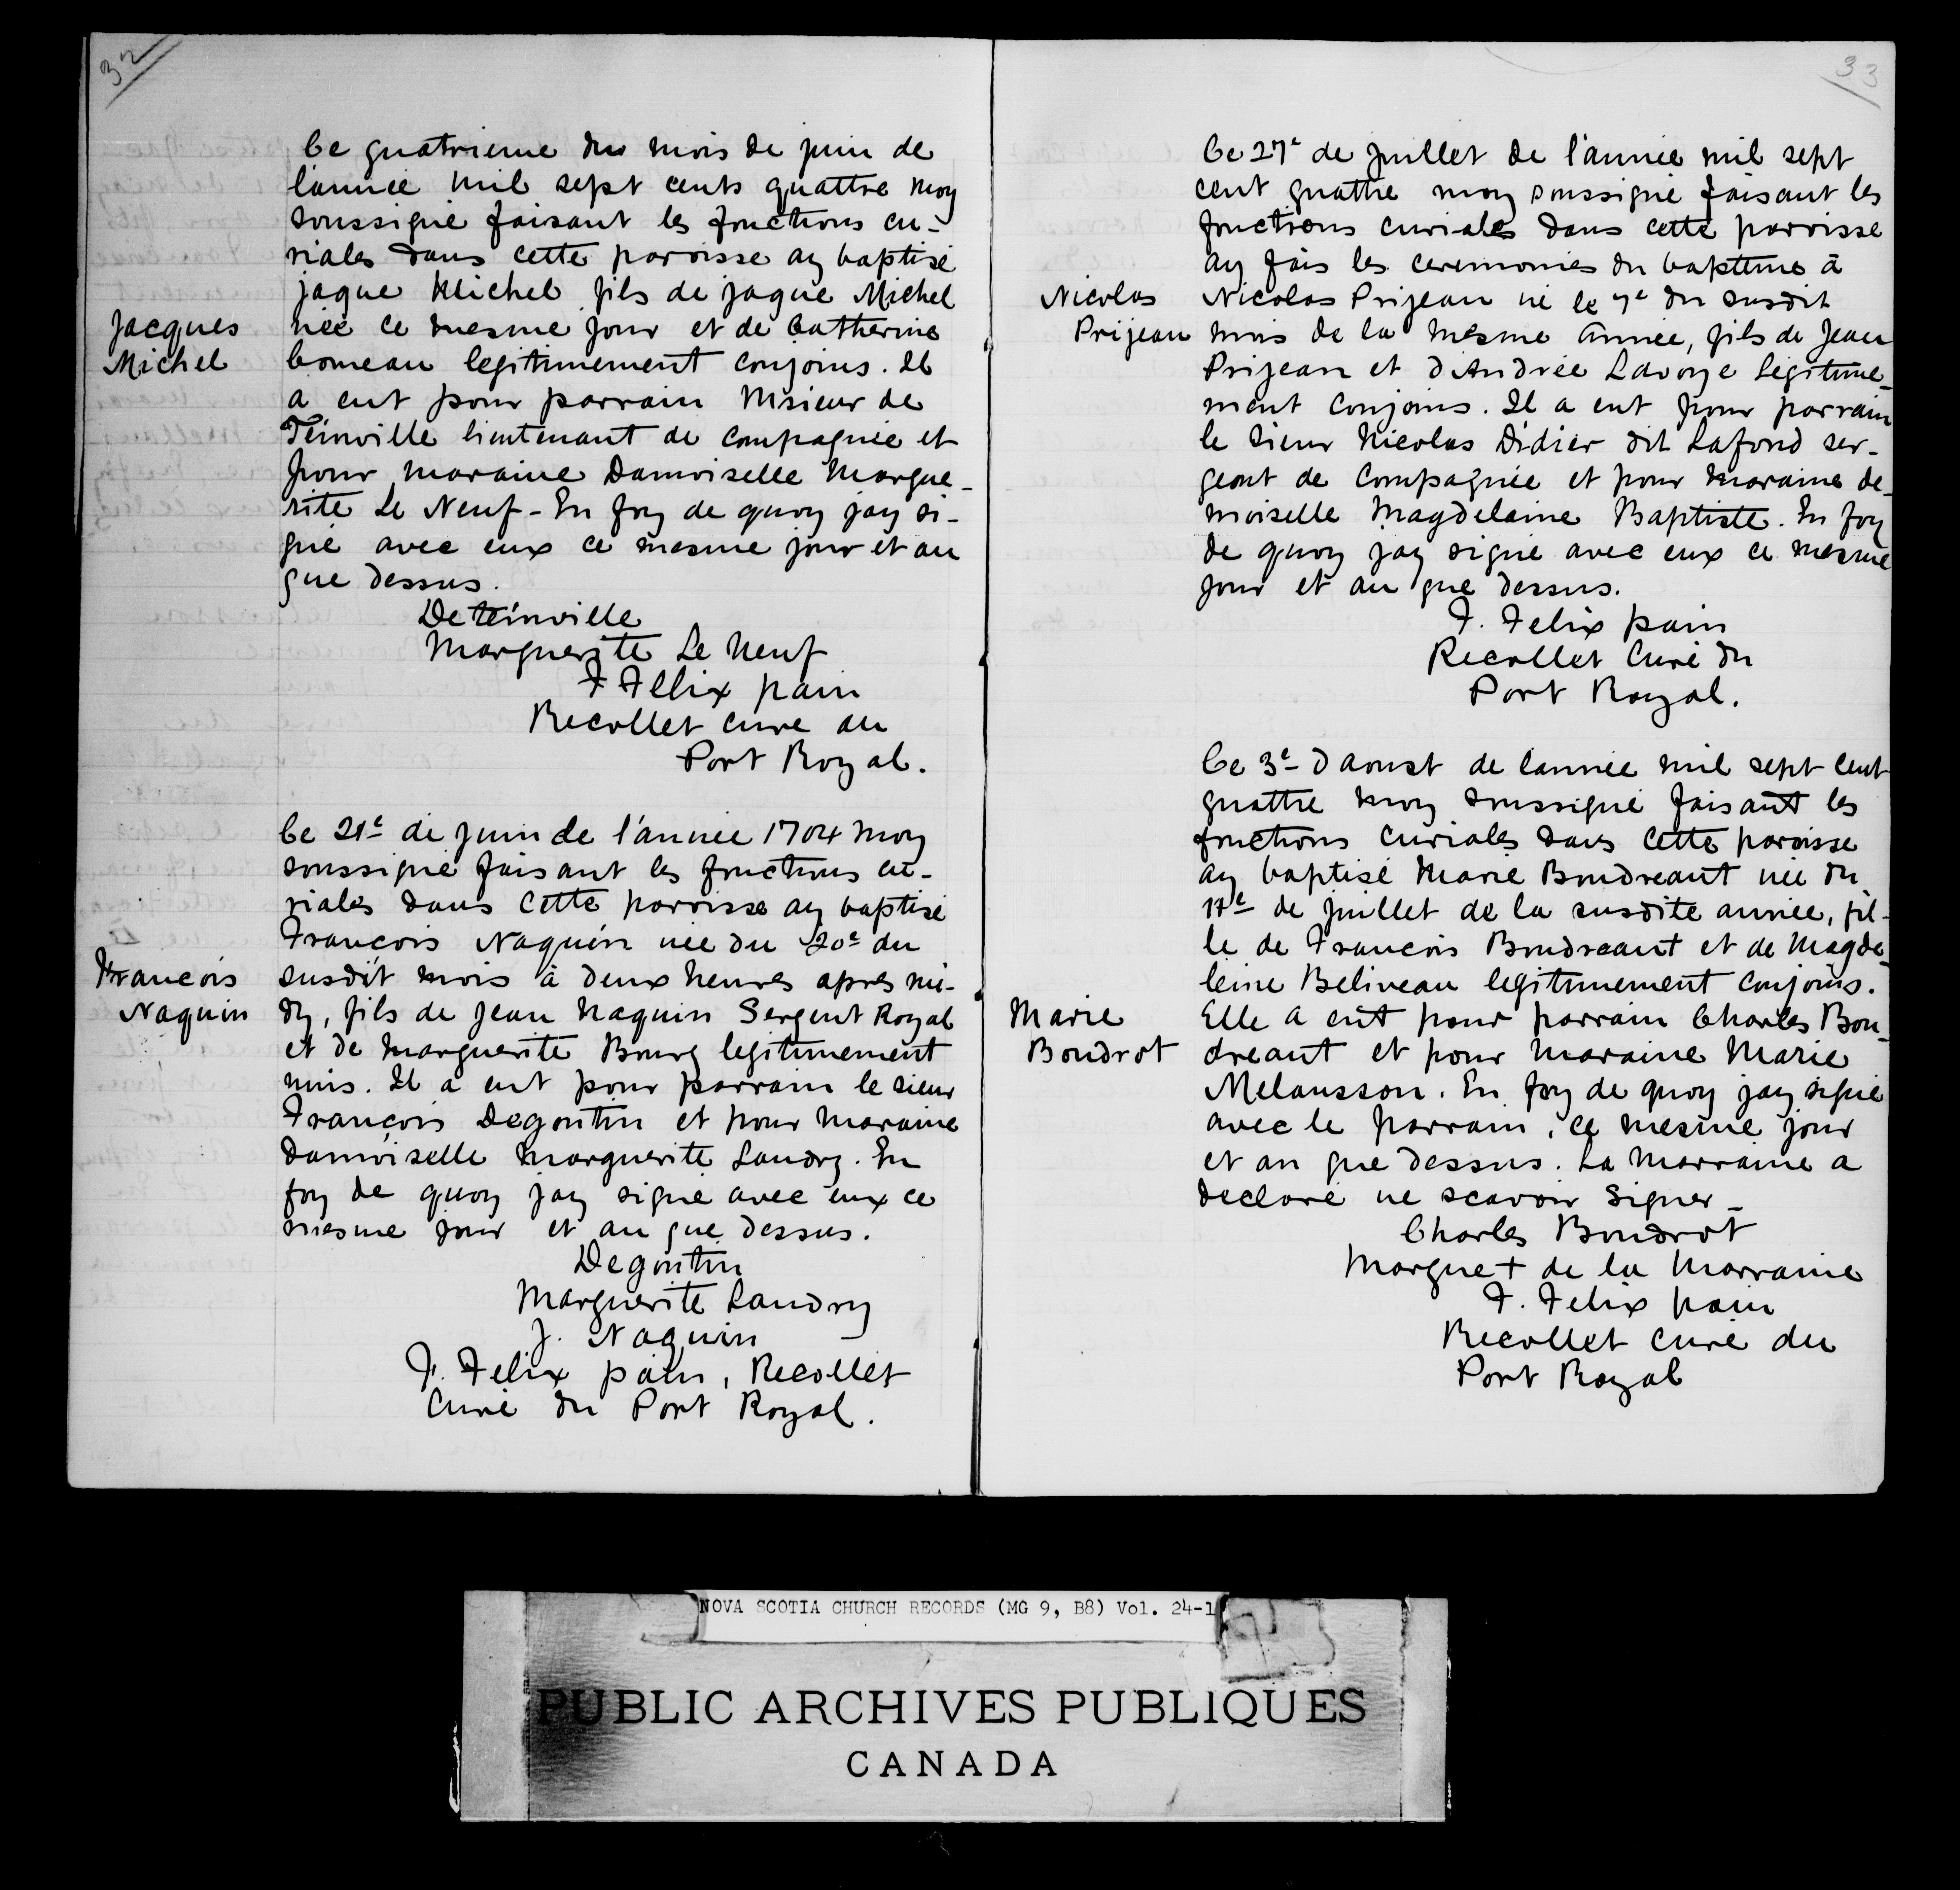 32
Ce quatrieme du mois de juin de
l'année mil sept cents quattre moy
soussigné faisant les fonctions cu-
riales dans cette paroisse ay baptisé
jaque Michel fils de jaque Michel
Jacques
Michel
née ce mesme jour et de Catherine
Comeau legitimement conjoins. Il
a eut pour parrain Msieur de
Teinville lieutenant de compagnie et
pour maraine Damoiselle Margue-
rite Le Neuf - En foy de quoy jay si-
gné avec eux ce mesme jour et an
que dessus.
De teinville
Marguerite Le Neuf
F Félix pain
Recollet curé du
Port Royal.
Ce 21e de juin de l'année 1704 moy
soussigné faisant les fonctions cu-
riales dans cette paroisse ay baptisé
François Naquin née du 20e du
François
Naquin
susdit mois à deux heures apres mi-
dy, fils de Jean Naquin Sergent Royal
et de Marguerite Bourg legitimement
unis. Il a eut pour parrain le sieur
François Degoutin et pour maraine
Damoiselle Marguerite Landry. En
foy de quoy jay signé avec eux ce
mesme jour et an que dessus.
Degoutin
Marguerite Landry
J. Naquin
F. Felix pain, Recollet
Curé du Port Royal.
33
Ce 27e de juillet de l'année mil sept
cent quattre moy soussigné faisant les
fonctions curiales dans cette paroisse
ay fais les ceremonies du baptême à
Nicolas
Prijean
Nicolas Prijean né le 7e du susdit
mois de la mesme année, fils de Jean
Prijean et d'Andrée Lavoye legitime-
ment conjoins. Il a eut pour parrain
le sieur Nicolas Didier dit Lafond ser-
geant de compagnie et pour maraine de-
moiselle Magdelaine Baptiste. En foy
de quoy jay signé avec eux ce mesme
jour et an que dessus.
F. Felix pain
Recollet Curé du
Port Royal.
Ce 3e daoust de lannée mil sept cent
quattre moy soussigné faisant les
fonctions curiales dans cette paroisse
ay baptisé Marie Boudreaut née du
de juillet de la susdite année, fil-
le de François Boudreaut et de Magde-
leine Beliveau legitimement conjoins.
Marie
Boudrot
Elle a eut pour parrain Charles Bou-
dreaut et pour maraine Marie
Melansson. En foy de quoy jay signé
avec le parrain, ce mesme jour
et an que dessus. La marraine a
declaré ne scavoir signer -
Charles Boudrot
Marque + de la Marraine
F. Felix pain
Recollet curé du
Port Royal
NOVA SCOTIA CHURCH RECORDS (MG 9, B8) Vol. 24-1
PUBLIC ARCHIVES PUBLIQUES
CANADA